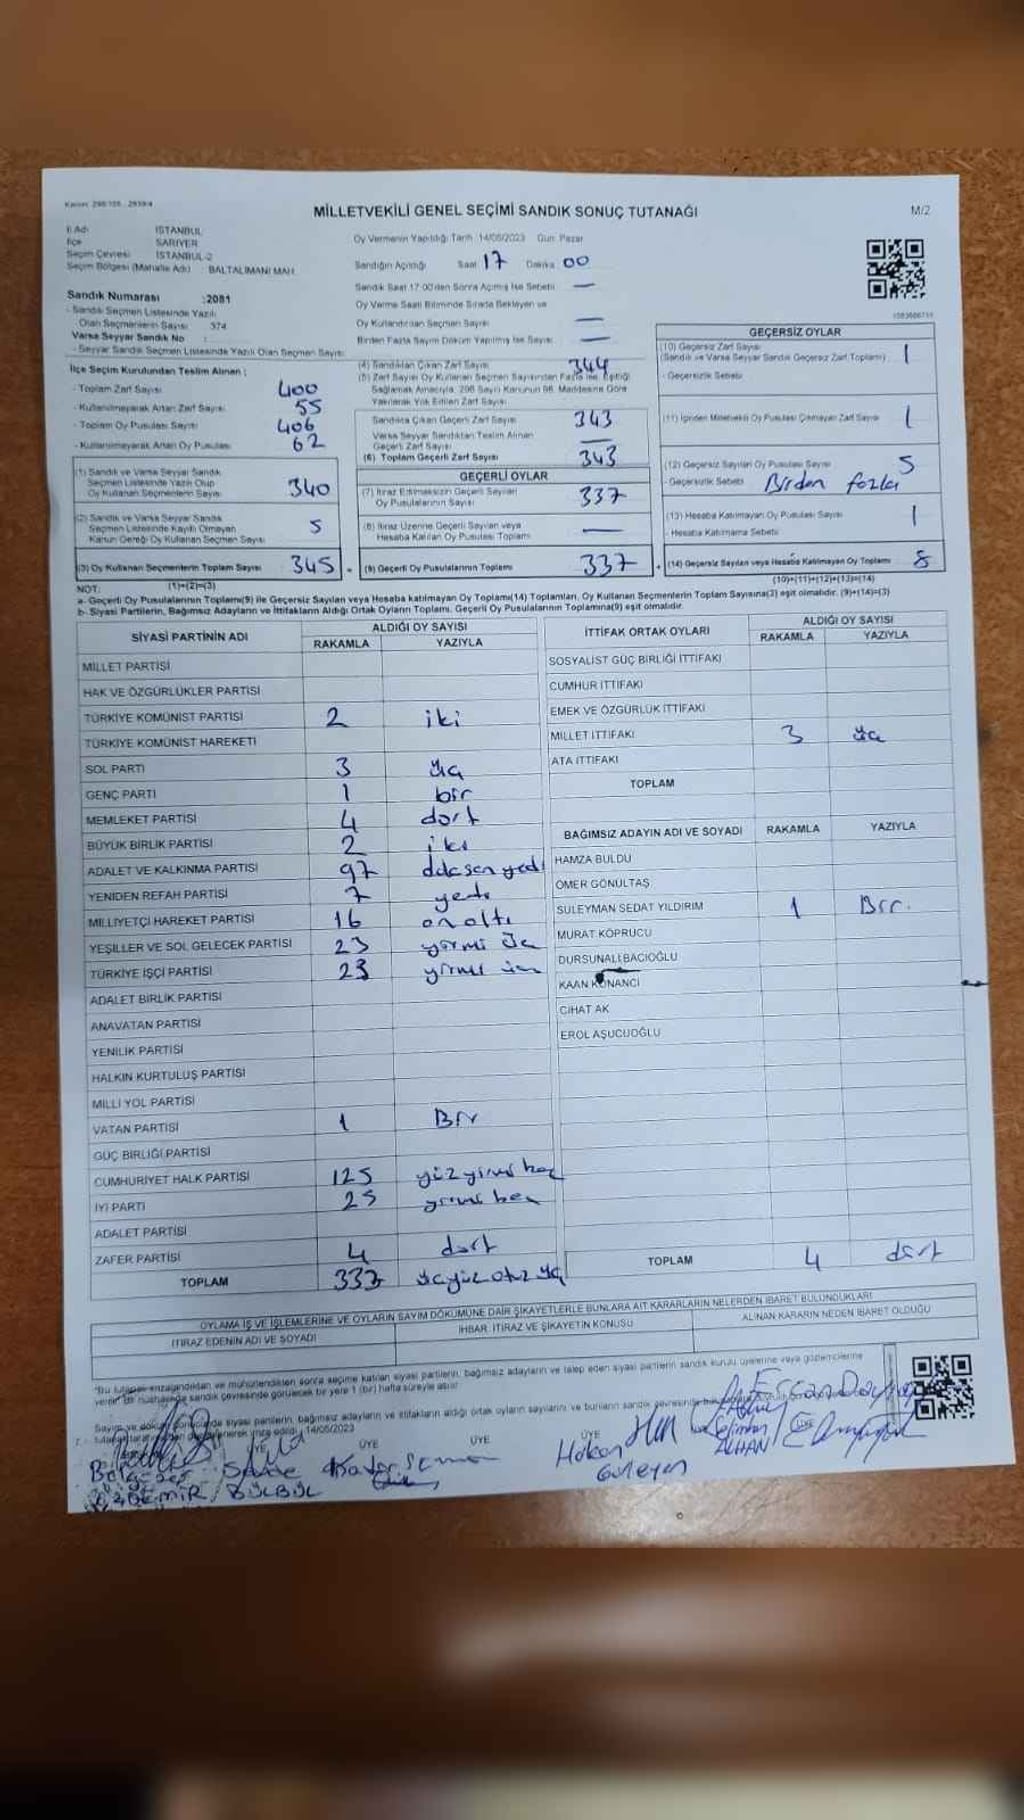 MİLLETVEKİLİ GENEL SEÇİMİ SANDIK SONUÇ TUTANAĞI
M/2
İl Adı İSTANBUL
İlçe SARIYER
Seçim Çevresi İSTANBUL-2
Seçim Bölgesi (Mahalle Adı) BALTALİMANI MAH.
Oy Vermenin Yapıldığı Tarih 14/05/2023 Gün: Pazar
Sandığın Açıldığı Saat 17 Dakika 00
Sandık Saat 17:00'den Sonra Açılmış İse Sebebi —
Oy Verme Saati Bitiminde Sırada Bekleyen ve
Oy Kullandırılan Seçmen Sayısı —
Birden Fazla Sayım Döküm Yapılmış İse Sayısı —
Sandık Numarası :2081
- Sandık Seçmen Listesinde Yazılı
Olan Seçmenlerin Sayısı 374
Varsa Seyyar Sandık No :
- Seyyar Sandık Seçmen Listesinde Yazılı Olan Seçmen Sayısı:
İlçe Seçim Kurulundan Teslim Alınan :
- Toplam Zarf Sayısı 400
- Kullanılmayarak Artan Zarf Sayısı 55
- Toplam Oy Pusulası Sayısı 406
- Kullanılmayarak Artan Oy Pusulası 62
(1) Sandık ve Varsa Seyyar Sandık
Seçmen Listesinde Yazılı Olup
Oy Kullanan Seçmenlerin Sayısı 340
(2) Sandık ve Varsa Seyyar Sandık
Seçmen Listesinde Kayıtlı Olmayan
Kanun Gereği Oy Kullanan Seçmen Sayısı 5
(3) Oy Kullanan Seçmenlerin Toplam Sayısı 345
(1)+(2)=(3)
(4) Sandıktan Çıkan Zarf Sayısı 344
(5) Zarf Sayısı Oy Kullanan Seçmen Sayısından Fazla İse, Eşitliği
Sağlamak Amacıyla, 298 Sayılı Kanunun 98. Maddesine Göre
Yakılarak Yok Edilen Zarf Sayısı
Sandıkta Çıkan Geçerli Zarf Sayısı 343
Varsa Seyyar Sandıktan Teslim Alınan
Geçerli Zarf Sayısı —
(6) Toplam Geçerli Zarf Sayısı 343
GEÇERLİ OYLAR
(7) İtiraz Edilmeksizin Geçerli Sayılan
Oy Pusulalarının Sayısı 337
(8) İtiraz Üzerine Geçerli Sayılan veya
Hesaba Katılan Oy Pusulası Toplamı —
(9) Geçerli Oy Pusulalarının Toplamı 337
GEÇERSİZ OYLAR
(10) Geçersiz Zarf Sayısı
(Sandık ve Varsa Seyyar Sandık Geçersiz Zarf Toplamı) 1
- Geçersizlik Sebebi
(11) İçinden Milletvekili Oy Pusulası Çıkmayan Zarf Sayısı 1
(12) Geçersiz Sayılan Oy Pusulası Sayısı 5
- Geçersizlik Sebebi Birden fazla
(13) Hesaba Katılmayan Oy Pusulası Sayısı 1
- Hesaba Katılmama Sebebi
(14) Geçersiz Sayılan veya Hesaba Katılmayan Oy Toplamı 8
(10)+(11)+(12)+(13)=(14)
NOT:
a- Geçerli Oy Pusulalarının Toplamı(9) ile Geçersiz Sayılan veya Hesaba katılmayan Oy Toplamı(14) Toplamları, Oy Kullanan Seçmenlerin Toplam Sayısına(3) eşit olmalıdır. (9)+(14)=(3)
b- Siyasi Partilerin, Bağımsız Adayların ve İttifakların Aldığı Ortak Oyların Toplamı, Geçerli Oy Pusulalarının Toplamına(9) eşit olmalıdır.
SİYASİ PARTİNİN ADI ALDIĞI OY SAYISI
RAKAMLA YAZIYLA
MİLLET PARTİSİ
HAK VE ÖZGÜRLÜKLER PARTİSİ
TÜRKİYE KOMÜNİST PARTİSİ 2 iki
TÜRKİYE KOMÜNİST HAREKETİ
SOL PARTİ 3 üç
GENÇ PARTİ 1 bir
MEMLEKET PARTİSİ 4 dört
BÜYÜK BİRLİK PARTİSİ 2 iki
ADALET VE KALKINMA PARTİSİ 97
YENİDEN REFAH PARTİSİ 7 yedi
MİLLİYETÇİ HAREKET PARTİSİ 16 on altı
YEŞİLLER VE SOL GELECEK PARTİSİ 23 yirmi üç
TÜRKİYE İŞÇİ PARTİSİ 23 yirmi üç
ADALET BİRLİK PARTİSİ
ANAVATAN PARTİSİ
YENİLİK PARTİSİ
HALKIN KURTULUŞ PARTİSİ
MİLLİ YOL PARTİSİ
VATAN PARTİSİ 1 Bir
GÜÇ BİRLİĞİ PARTİSİ
CUMHURİYET HALK PARTİSİ 125 yüz yirmi beş
İYİ PARTİ 25 yirmi beş
ADALET PARTİSİ
ZAFER PARTİSİ 4 dört
TOPLAM 333 üçyüz otuz üç
İTTİFAK ORTAK OYLARI ALDIĞI OY SAYISI
RAKAMLA YAZIYLA
SOSYALİST GÜÇ BİRLİĞİ İTTİFAKI
CUMHUR İTTİFAKI
EMEK VE ÖZGÜRLÜK İTTİFAKI
MİLLET İTTİFAKI 3 üç
ATA İTTİFAKI
TOPLAM
BAĞIMSIZ ADAYIN ADI VE SOYADI RAKAMLA YAZIYLA
HAMZA BULDU
ÖMER GÖNÜLTAŞ
SÜLEYMAN SEDAT YILDIRIM 1 Bir.
MURAT KÖPRÜCÜ
DURSUNALİ BACIOĞLU
KAAN KONANCI
CİHAT AK
EROL AŞUCUOĞLU
TOPLAM 4 dört
OYLAMA İŞ VE İŞLEMLERİNE VE OYLARIN SAYIM DÖKÜMÜNE DAİR ŞİKAYETLERLE BUNLARA AİT KARARLARIN NELERDEN İBARET BULUNDUKLARI
İTİRAZ EDENİN ADI VE SOYADI İHBAR, İTİRAZ VE ŞİKAYETİN KONUSU ALINAN KARARIN NEDEN İBARET OLDUĞU
ÜYE ÜYE ÜYE ÜYE
Hakan
Güleyen
Selman
ALHAN
BÜLBÜL